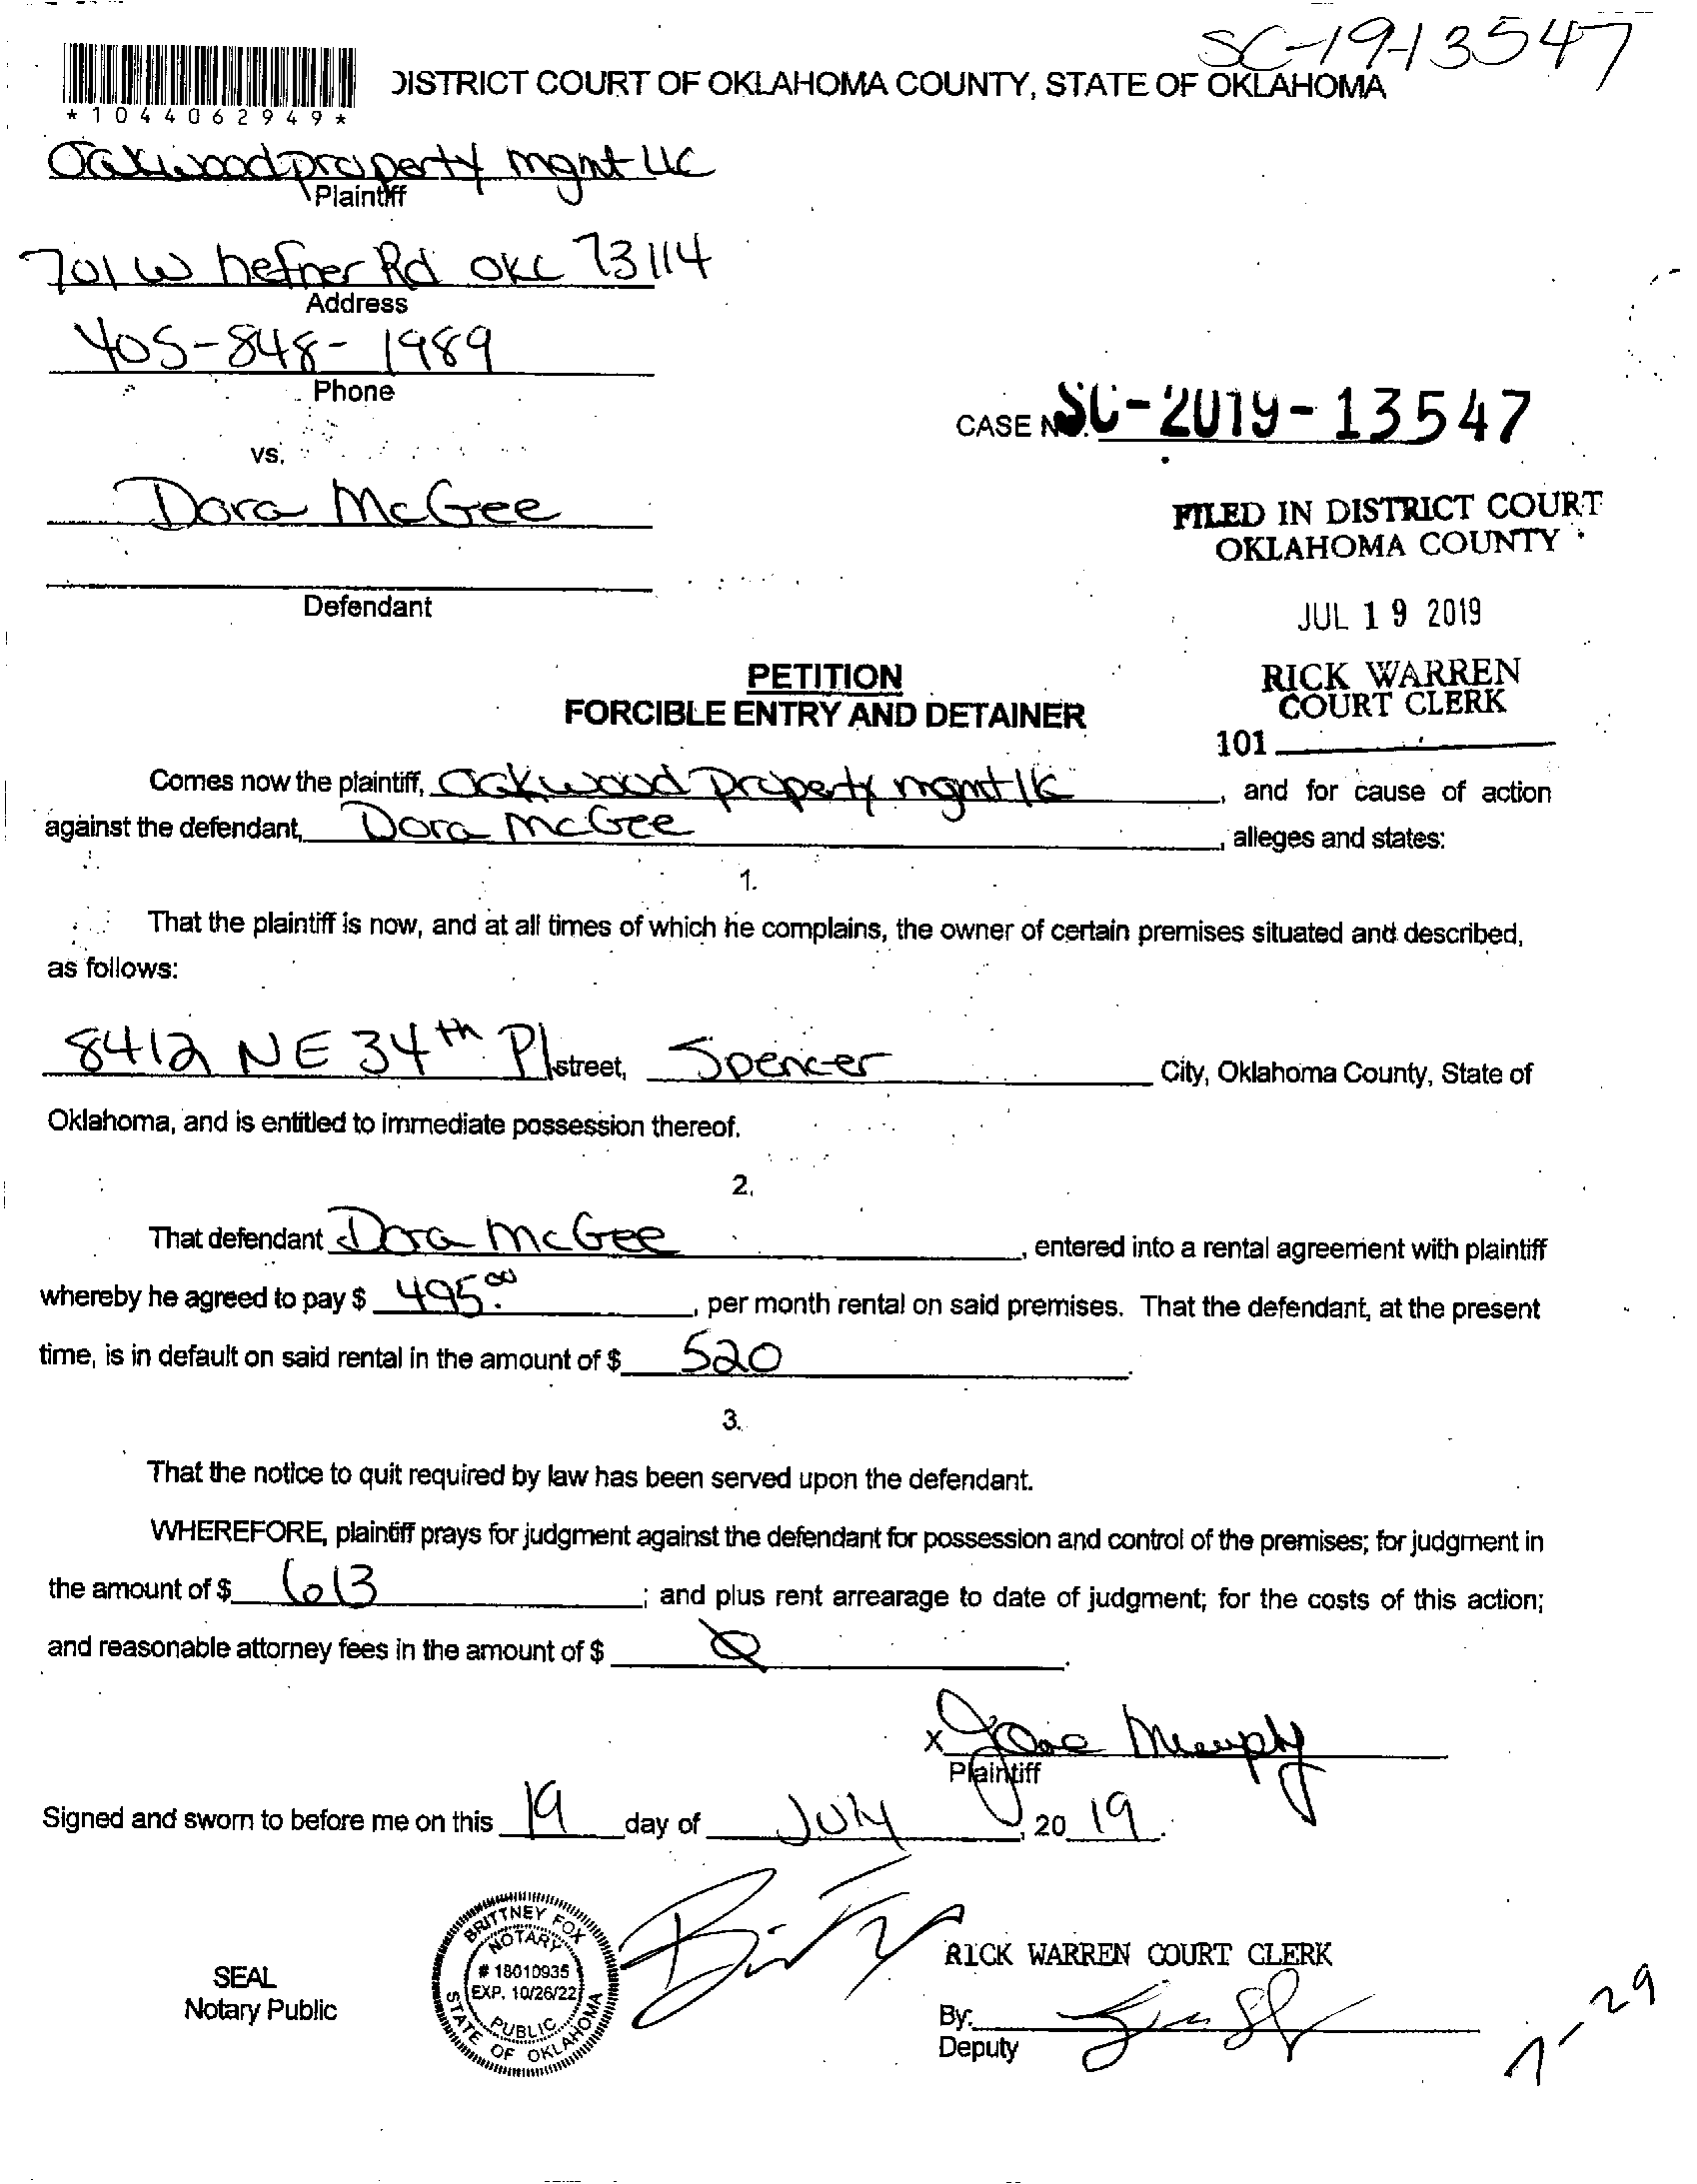 SC-19-13547
*1044062949*
DISTRICT COURT OF OKLAHOMA COUNTY, STATE OF OKLAHOMA
Oakwood property mgnt LLC
Plaintiff
701 W hefner Rd OKC 73114
Address
405-848-1989
Phone
CASE NO. SC-2019-13547
vs.
Dora McGee
FILED IN DISTRICT COURT
OKLAHOMA COUNTY
Defendant
JUL 19 2019
PETITION
RICK WARREN
COURT CLERK
FORCIBLE ENTRY AND DETAINER
101
Comes now the plaintiff, Oakwood Property mgmt llc, and for cause of action
against the defendant, Dora McGee, alleges and states:
1.
That the plaintiff is now, and at all times of which he complains, the owner of certain premises situated and described,
as follows:
8412 NE 34th Pl street, Spencer City, Oklahoma County, State of
Oklahoma, and is entitled to immediate possession thereof.
2.
That defendant Dora McGee, entered into a rental agreement with plaintiff
whereby he agreed to pay $ 495.00, per month rental on said premises. That the defendant, at the present
time, is in default on said rental in the amount of $ 520.
3.
That the notice to quit required by law has been served upon the defendant.
WHEREFORE, plaintiff prays for judgment against the defendant for possession and control of the premises; for judgment in
the amount of $ 613; and plus rent arrearage to date of judgment; for the costs of this action;
and reasonable attorney fees in the amount of $ 0.
x
Plaintiff
Signed and sworn to before me on this 19 day of July, 20 19.
BRITTNEY FOX
NOTARY
# 18010935
EXP. 10/26/22
PUBLIC
STATE OF OKLAHOMA
SEAL
Notary Public
RICK WARREN COURT CLERK
By:
Deputy
7-29